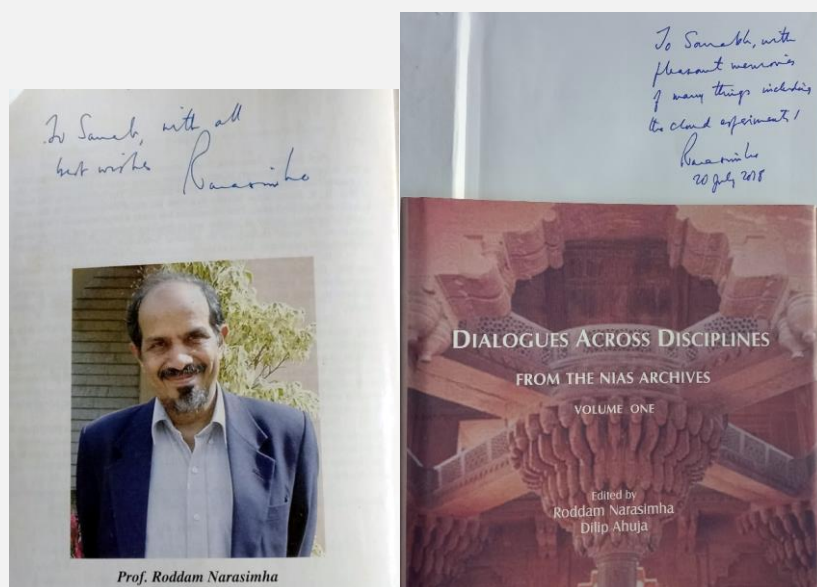 To Saurab, with all
best wishes Narasimha
Prof. Roddam Narasimha
To Saurabh, with
pleasant memories
of many things including
the cloud experiments!
Narasimha
20 July 2018
DIALOGUES ACROSS DISCIPLINES
FROM THE NIAS ARCHIVES
VOLUME ONE
Edited by
Roddam Narasimha
Dilip Ahuja